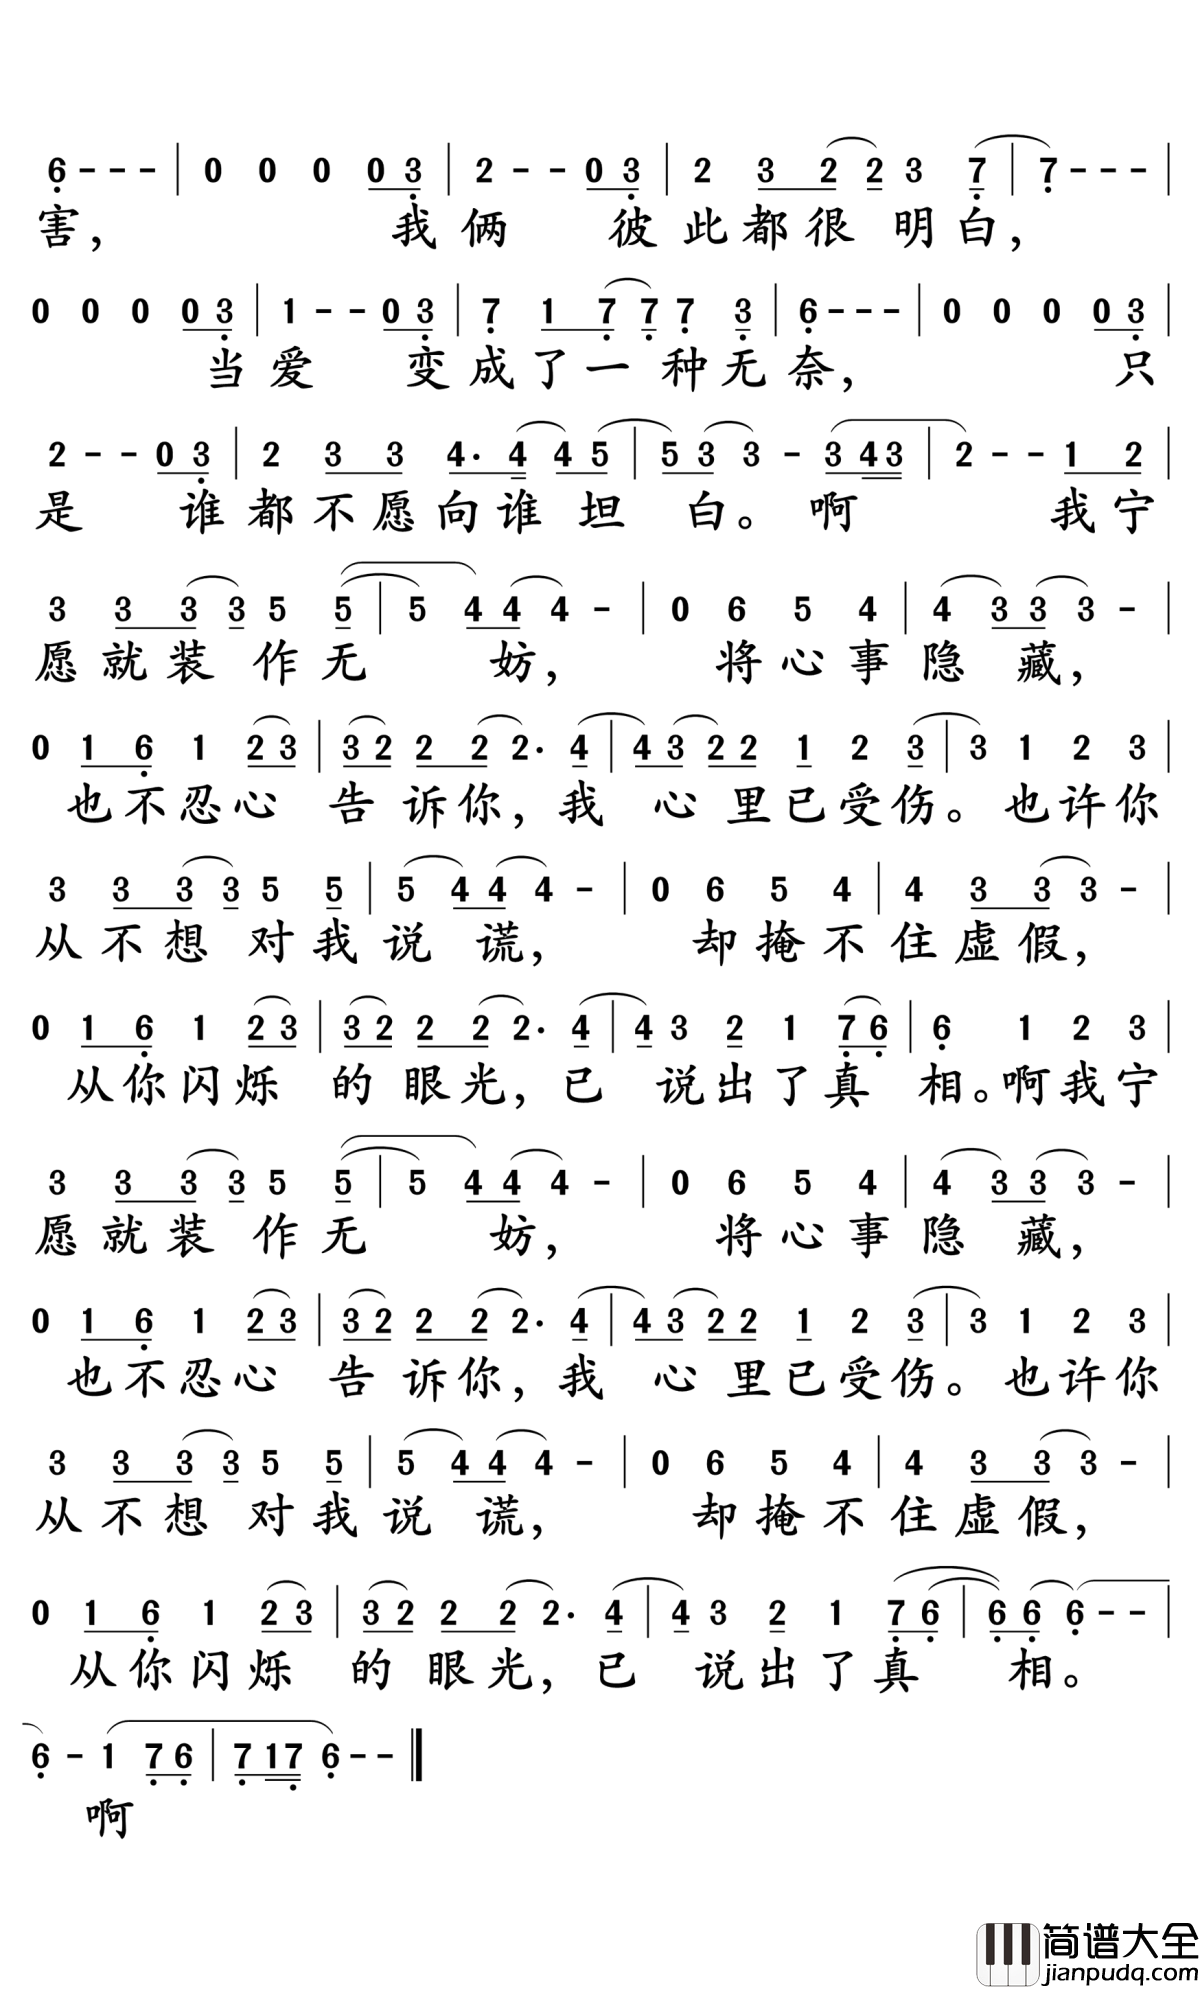 6 - - - | 0 0 0 0 3 | 2 - - 0 3 | 2 3 2 2 3 7 | 7 - - - |
害， 我俩 彼此都很明白，
0 0 0 0 3 | 1 - - 0 3 | 7 1 7 7 7 3 | 6 - - - | 0 0 0 0 3 |
当爱 变成了一种无奈， 只
2 - - 0 3 | 2 3 3 4· 4 4 5 | 5 3 3 - 3 4 3 | 2 - - 1 2 |
是 谁都不愿向谁坦 白。 啊 我宁
3 3 3 3 5 5 | 5 4 4 4 - | 0 6 5 4 | 4 3 3 3 - |
愿就装 作无 妨， 将心事隐 藏，
0 1 6 1 2 3 | 3 2 2 2 2· 4 | 4 3 2 2 1 2 3 | 3 1 2 3 |
也不忍心 告 诉你，我 心 里已受伤。也许你
3 3 3 3 5 5 | 5 4 4 4 - | 0 6 5 4 | 4 3 3 3 - |
从不想 对我说 谎， 却掩不住虚假，
0 1 6 1 2 3 | 3 2 2 2 2· 4 | 4 3 2 1 7 6 | 6 1 2 3 |
从你闪烁 的 眼光，已 说出了真 相。啊我宁
3 3 3 3 5 5 | 5 4 4 4 - | 0 6 5 4 | 4 3 3 3 - |
愿就装 作无 妨， 将心事隐 藏，
0 1 6 1 2 3 | 3 2 2 2 2· 4 | 4 3 2 2 1 2 3 | 3 1 2 3 |
也不忍心 告 诉你，我 心 里已受伤。也许你
3 3 3 3 5 5 | 5 4 4 4 - | 0 6 5 4 | 4 3 3 3 - |
从不想 对我说 谎， 却掩不住虚假，
0 1 6 1 2 3 | 3 2 2 2 2· 4 | 4 3 2 1 7 6 | 6 6 6 - - |
从你闪烁 的 眼光，已 说出了真 相。
6 - 1 7 6 | 7 1 7 6 - - ‖
啊
简谱大全
jianpudq.com